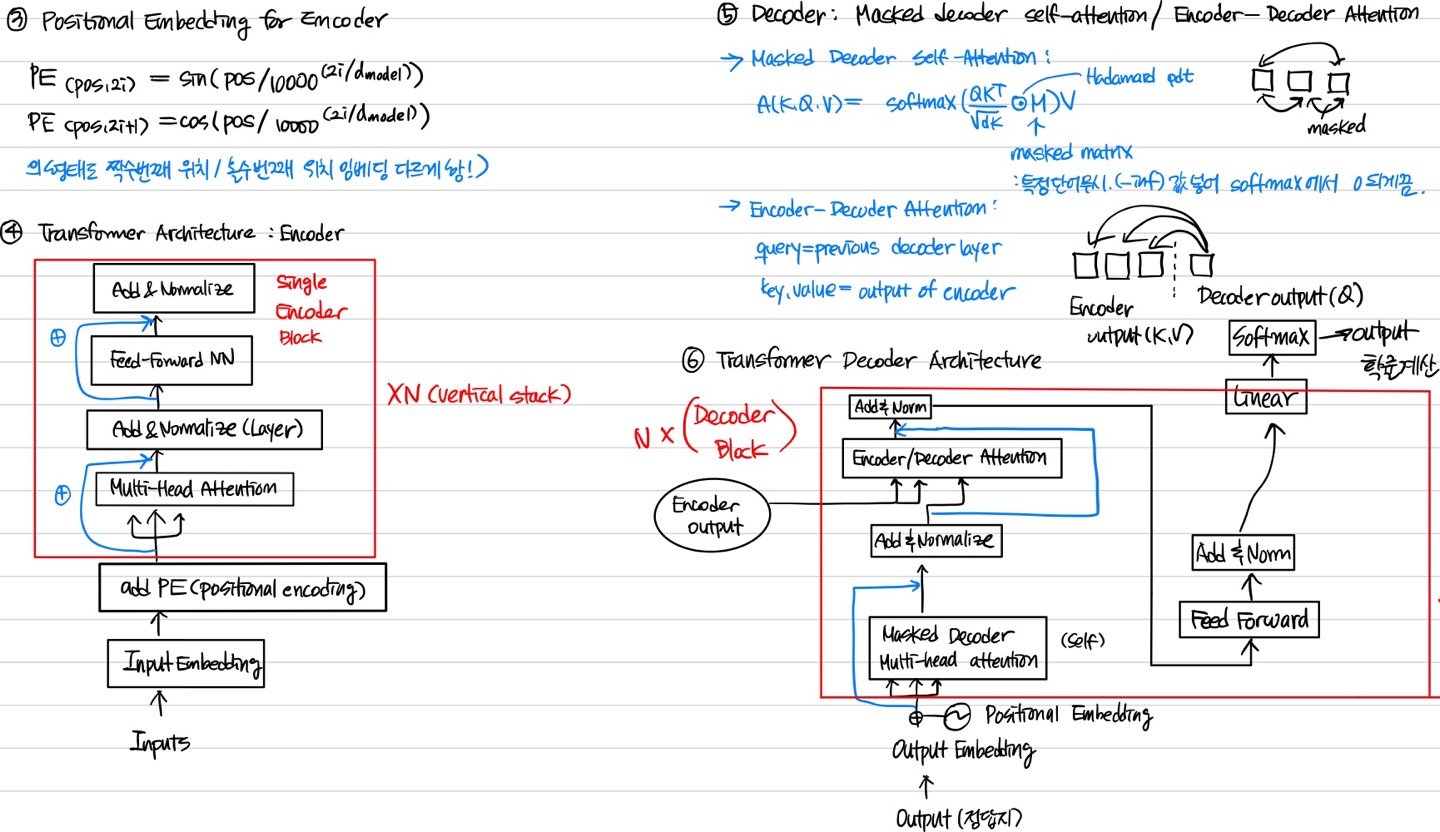 ③ Positional Embedding for Encoder
PE (pos,2i) = sin(pos/10000^(2i/dmodel))
PE (pos,2i+1) = cos(pos/10000^(2i/dmodel))
의 형태로 짝수번째 위치 / 홀수번째 위치 임베딩 다르게 함!)
④ Transformer Architecture : Encoder
Add & Normalize
Single
Encoder
Block
⊕
Feed-Forward NN
XN (vertical stack)
Add & Normalize (Layer)
⊕
Multi-Head Attention
add PE (positional encoding)
Input Embedding
Inputs
⑤ Decoder: Masked decoder self-attention / Encoder-Decoder Attention
→ Masked Decoder Self-Attention:
Hadamard pdt
A(K,Q,V) = softmax(QKT/√dK ⊙ M)V
masked
masked matrix
: 특정단어 무시. (-inf) 값 넣어 softmax에서 0되게끔.
→ Encoder-Decoder Attention:
query = previous decoder layer
key, value = output of encoder
Encoder
output (K,V)
Decoder output (Q)
⑥ Transformer Decoder Architecture
Softmax → output
확률계산
Linear
N × (Decoder
Block)
Add & Norm
Encoder/Decoder Attention
Encoder
output
Add & Normalize
Add & Norm
Feed Forward
Masked Decoder
Multi-head attention
(Self)
⊕ Positional Embedding
Output Embedding
Output (정답지)